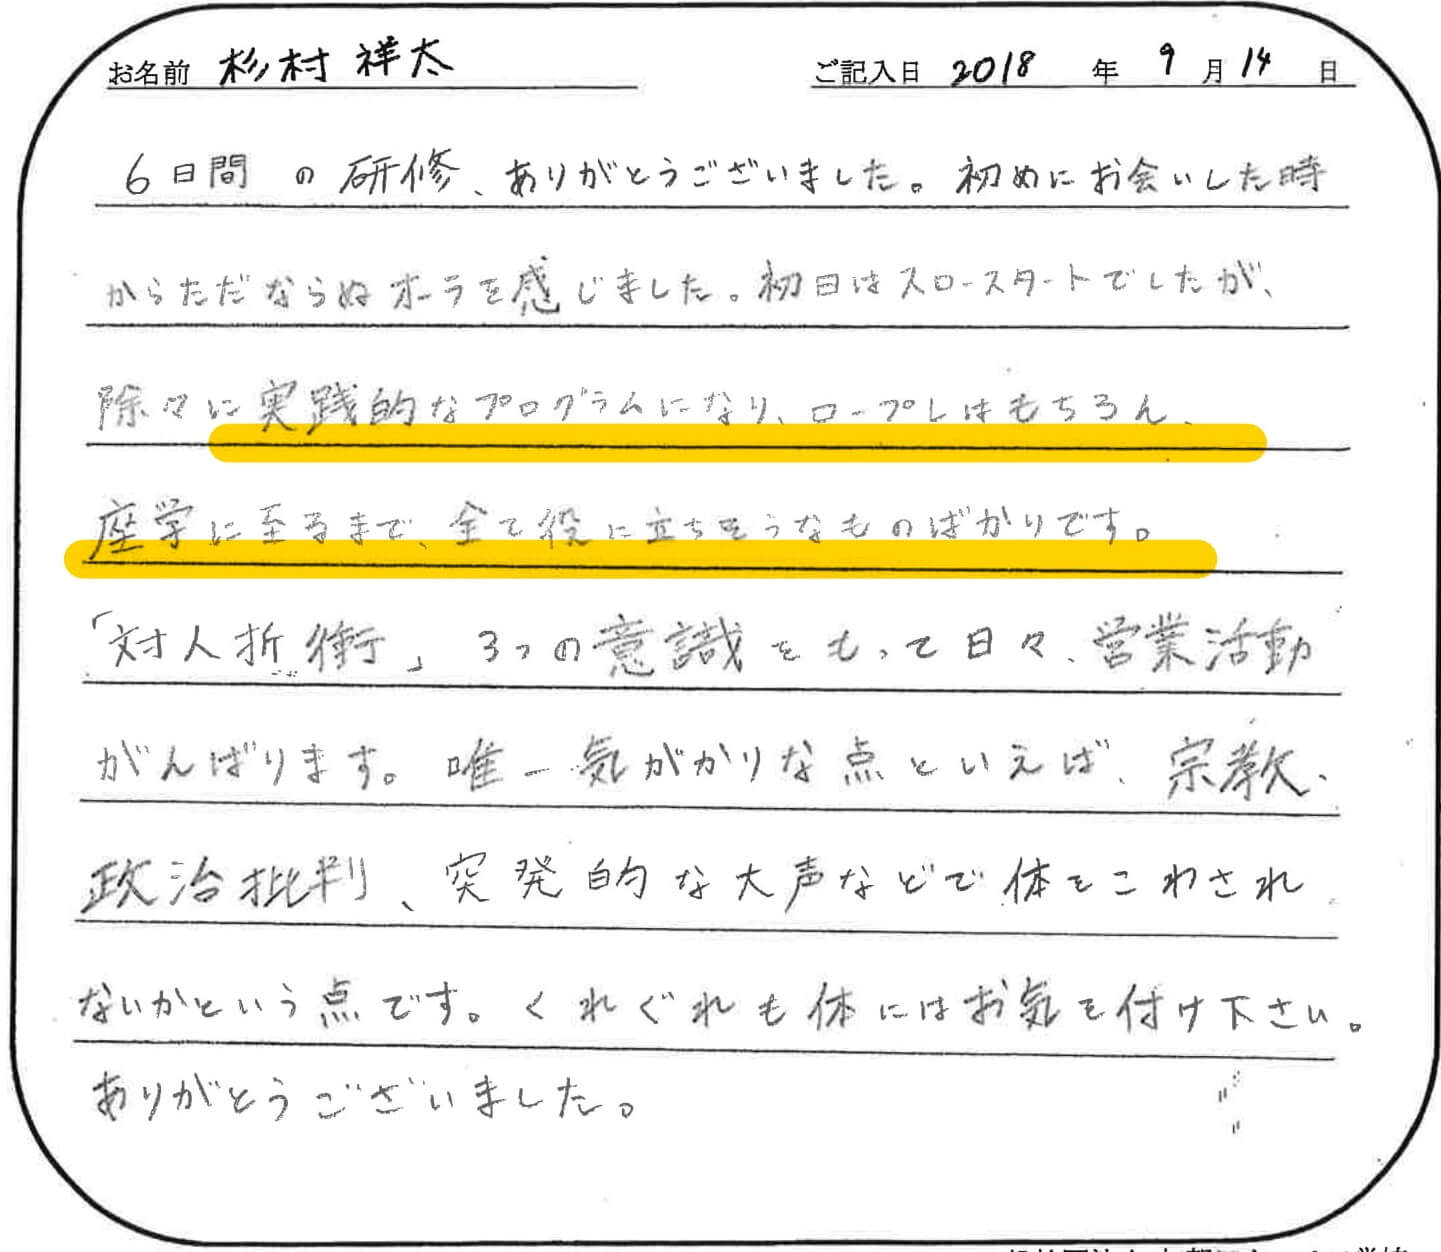 お名前 杉村 祥太 ご記入日 2018 年 9 月 14 日
6日間の研修、ありがとうございました。初めにお会いした時
からただならぬオーラを感じました。初日はスロースタートでしたが、
除々に実践的なプログラムになり、ロープレはもちろん、
座学に至るまで、全て役に立ちそうなものばかりです。
「対人折衝」3つの意識をもって日々、営業活動
がんばります。唯一気がかりな点といえば、宗教、
政治批判、突発的な大声などで体をこわされ
ないかという点です。くれぐれも体にはお気を付け下さい。
ありがとうございました。